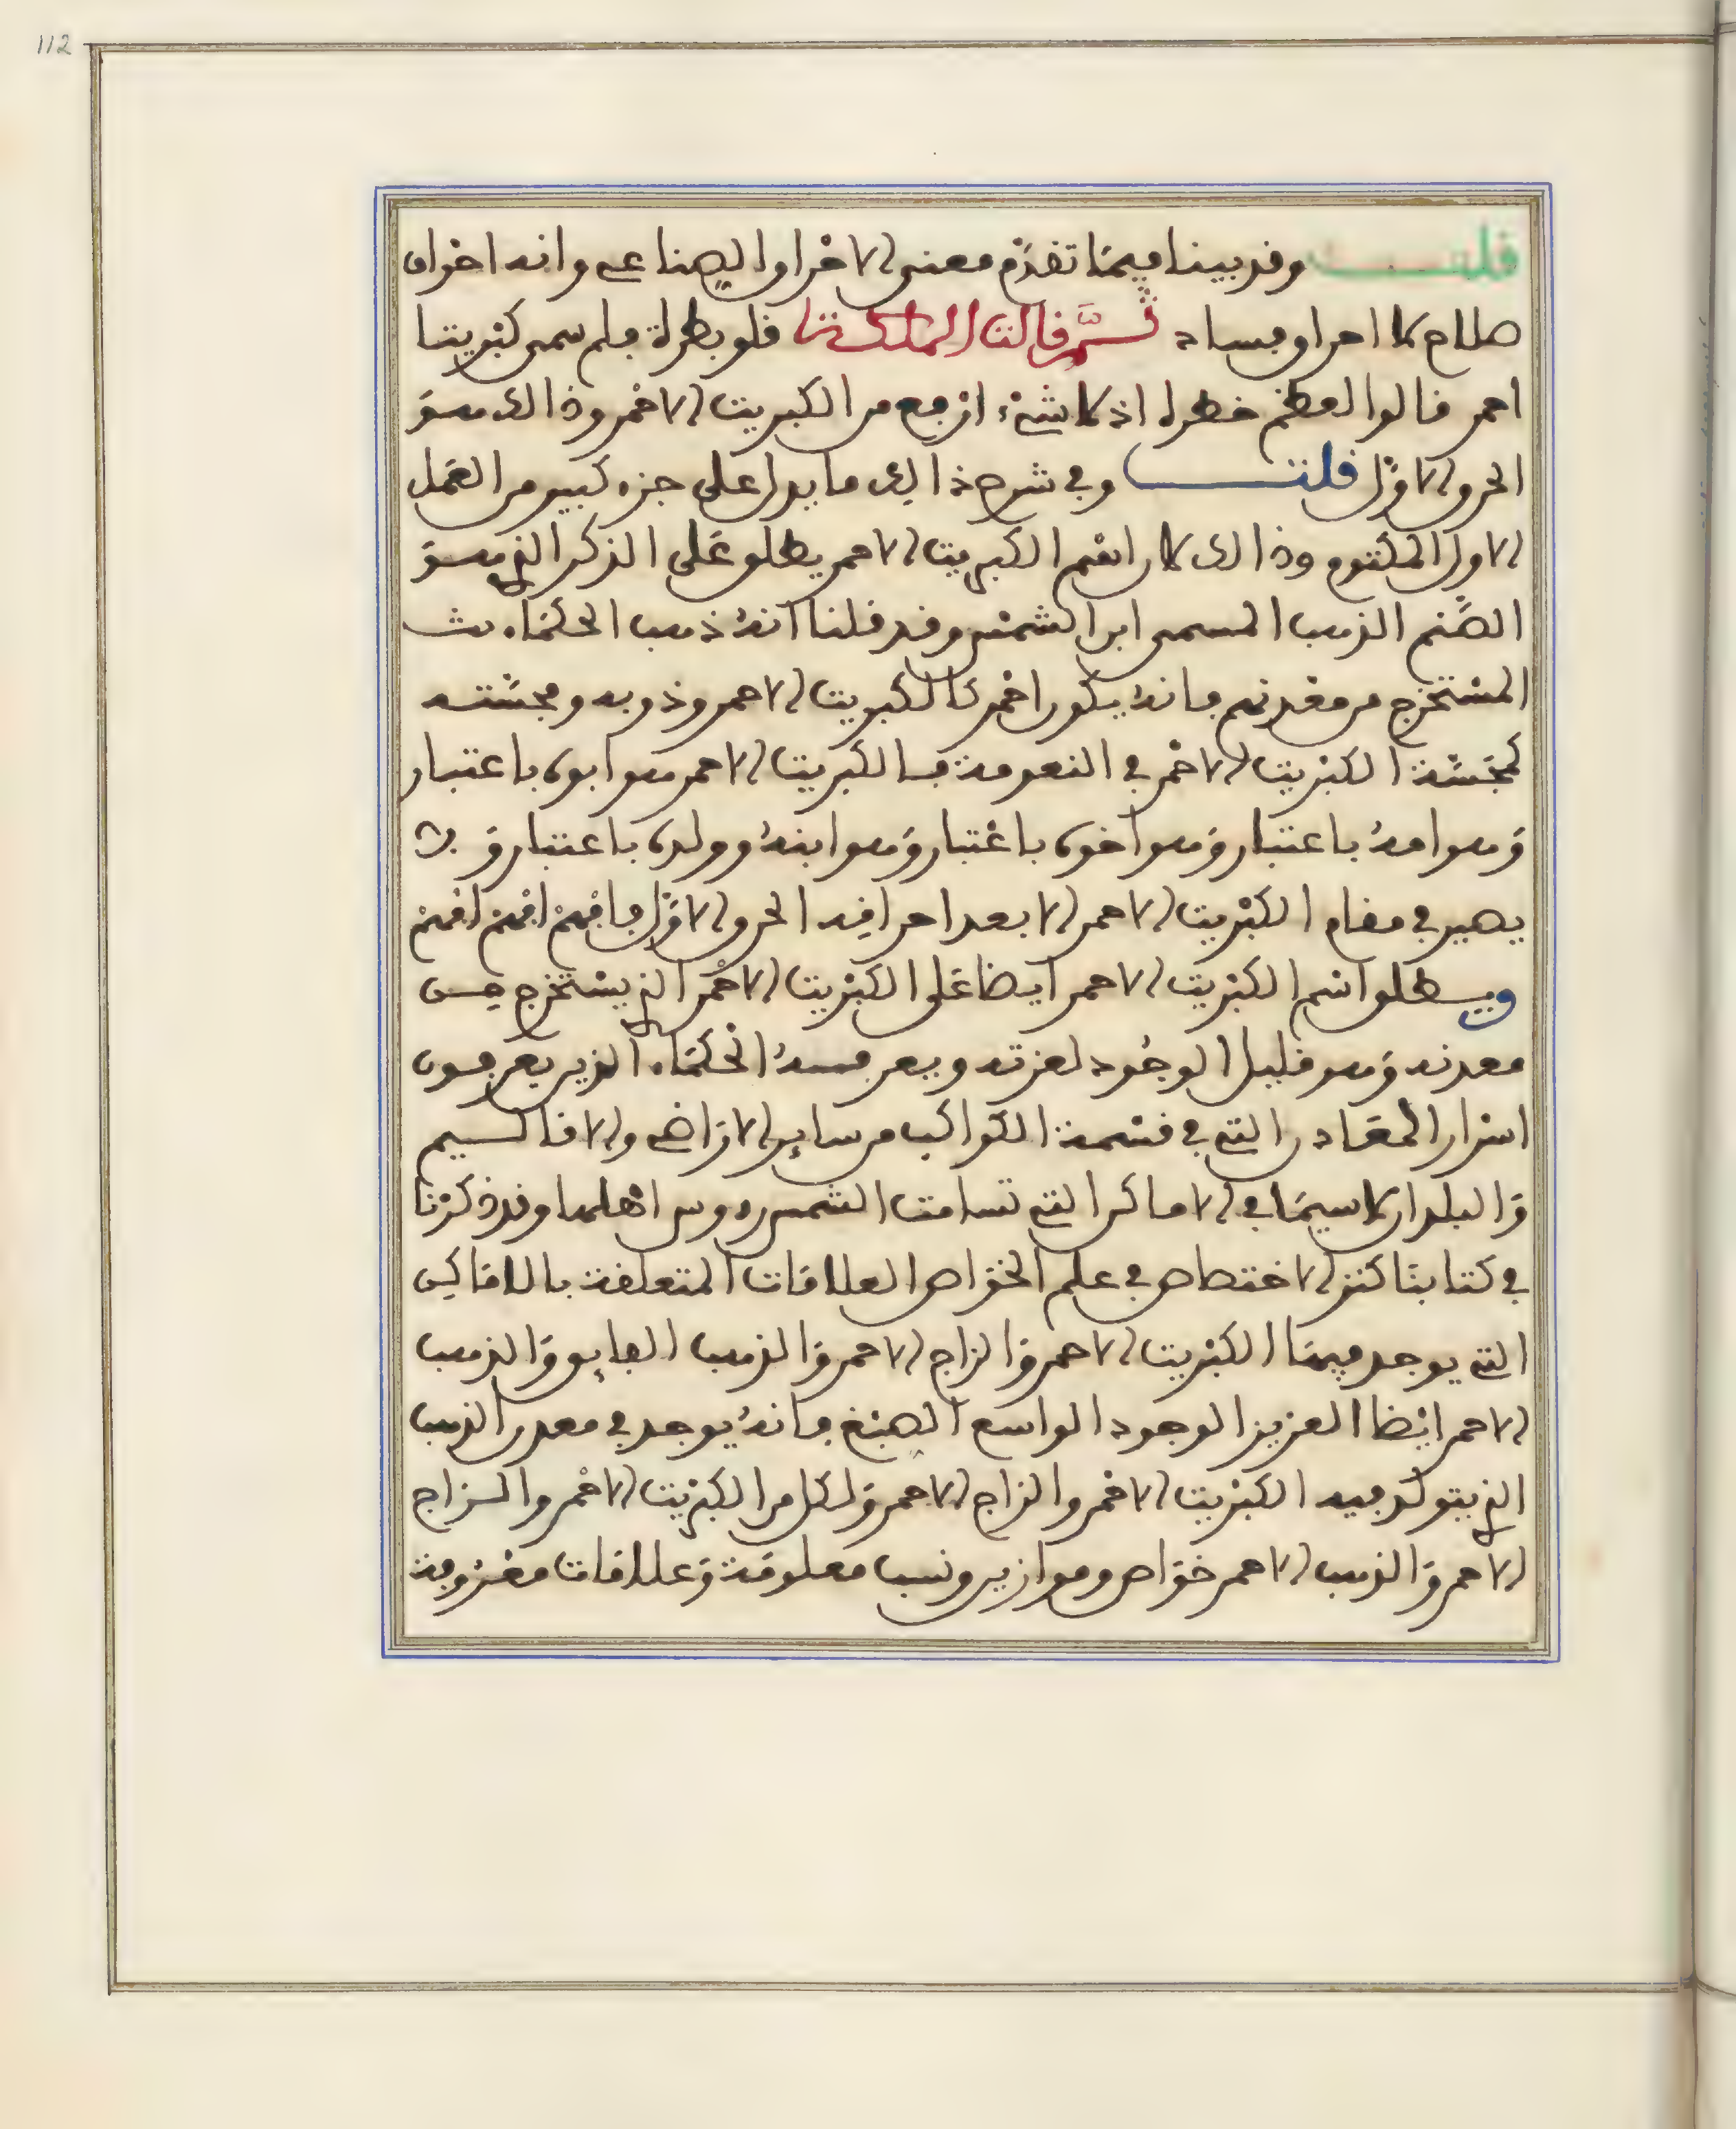 112
قلت وقد بينا فيما تقدم معنى الاحراق الصناعي وانه احراق
صلاح لا احراق فساد ثم قالت الملكة قلوبطرة فلم سمي كبريتا
احمر قالوا لعظم خطره اذ لا شيء ارفع من الكبريت الاحمر وذالك هو
الحرق الاول قلت وفي شرح ذالك ما يدل على جزء كبير من العمل
الاول المكتوم وذالك لان اسم الكبريت الاحمر يطلق على الذكر الذي هو
الصنم الذهب المسمى ابن الشمس وقد قلنا انه ذهب الحكماء
المستخرج من معدنهم فانه يكون احمر كالكبريت الاحمر وذوبه ومجسته
كمجسة الكبريت الاحمر في النعومة فالكبريت الاحمر هو ابوه باعتبار
وهو امه باعتبار وهو اخوه باعتبار وهو ابنه وولده باعتبار ولا
يصير في مقام الكبريت الاحمر الا بعد احراقه الحرق الاول فافهم افهم افهم
ويطلق اسم الكبريت الاحمر ايضا على الكبريت الاحمر الذي يستخرج من
معدنه وهو قليل الوجود لعزته ويعرفه الحكماء الذين يعرفون
اسرار المعادن التي في قسمة الكواكب من ساير الاراضي والاقاليم
والبلدان لا سيما في الاماكن التي تسامت الشمس رءوس اهلها وقد ذكرنا
في كتابنا كنز الاختصاص في علم الخواص العلاقات المتعلقة بالاماكن
التي يوجد فيها الكبريت الاحمر والزاج الاحمر والذهب الفايق والذهب
الاحمر ايضا العزيز الوجود الواسع الصبغ فانه يوجد في معدن الذهب
الذي يتولد فيه الكبريت الاحمر والزاج الاحمر ولكل من الكبريت الاحمر والزاج
الاحمر والذهب الاحمر خواص وموازين ونسب معلومة وعلاقات معروفة